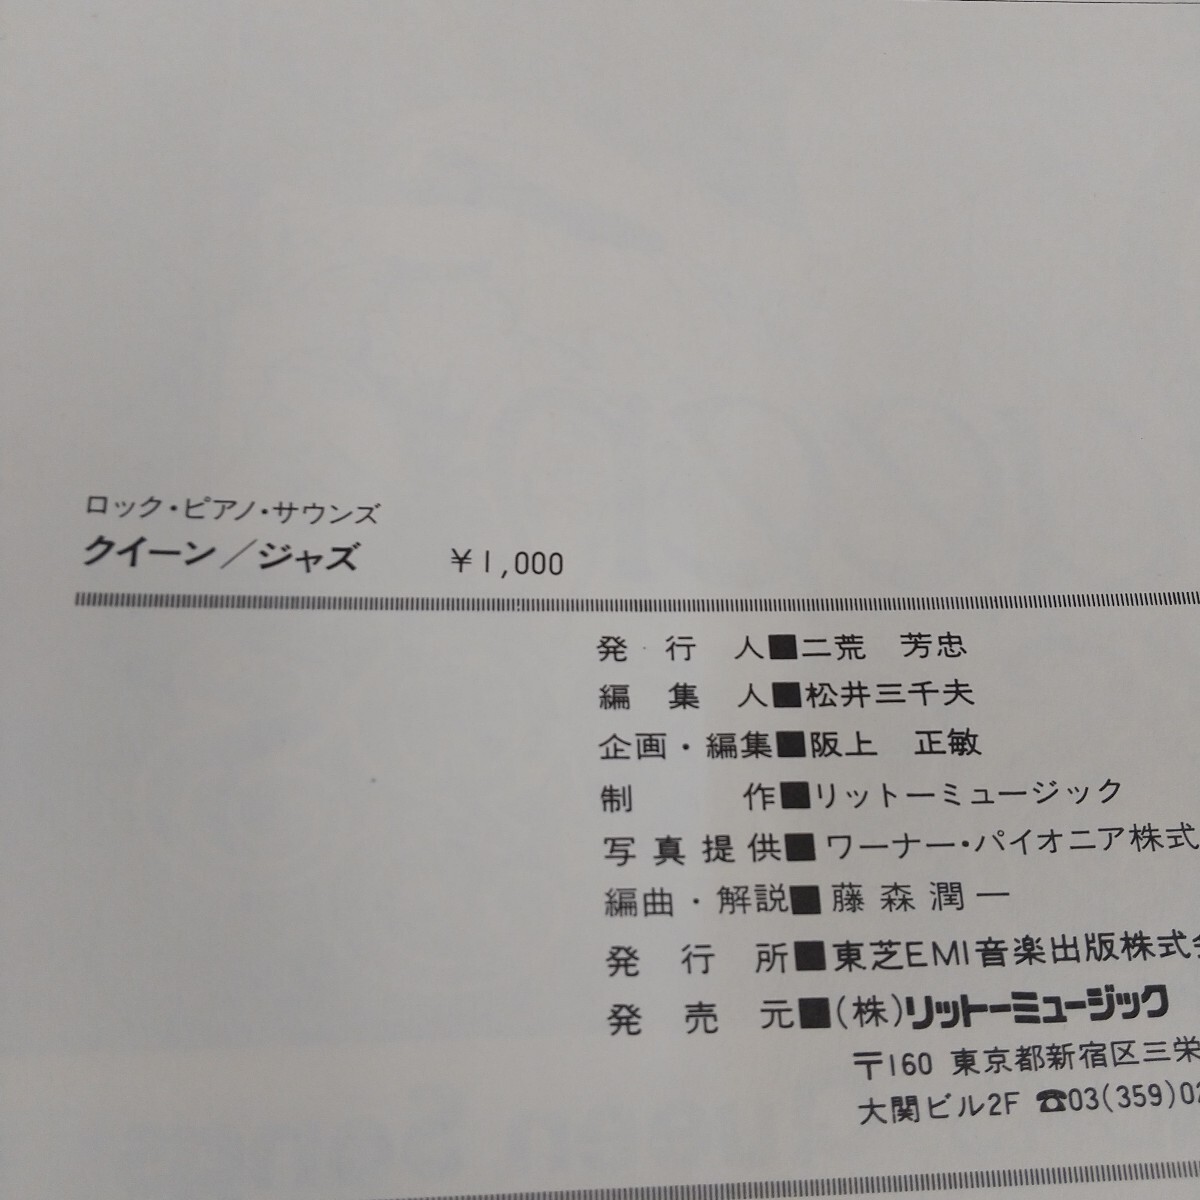 ロック・ピアノ・サウンズ
クイーン／ジャズ ￥1,000
発行人■二荒 芳忠
編集人■松井三千夫
企画・編集■阪上 正敏
制作■リットーミュージック
写真提供■ワーナー・パイオニア株式
編曲・解説■藤森潤一
発行所■東芝EMI音楽出版株式会
発売元■(株)リットーミュージック
〒160 東京都新宿区三栄
大関ビル2F ☎03(359)02